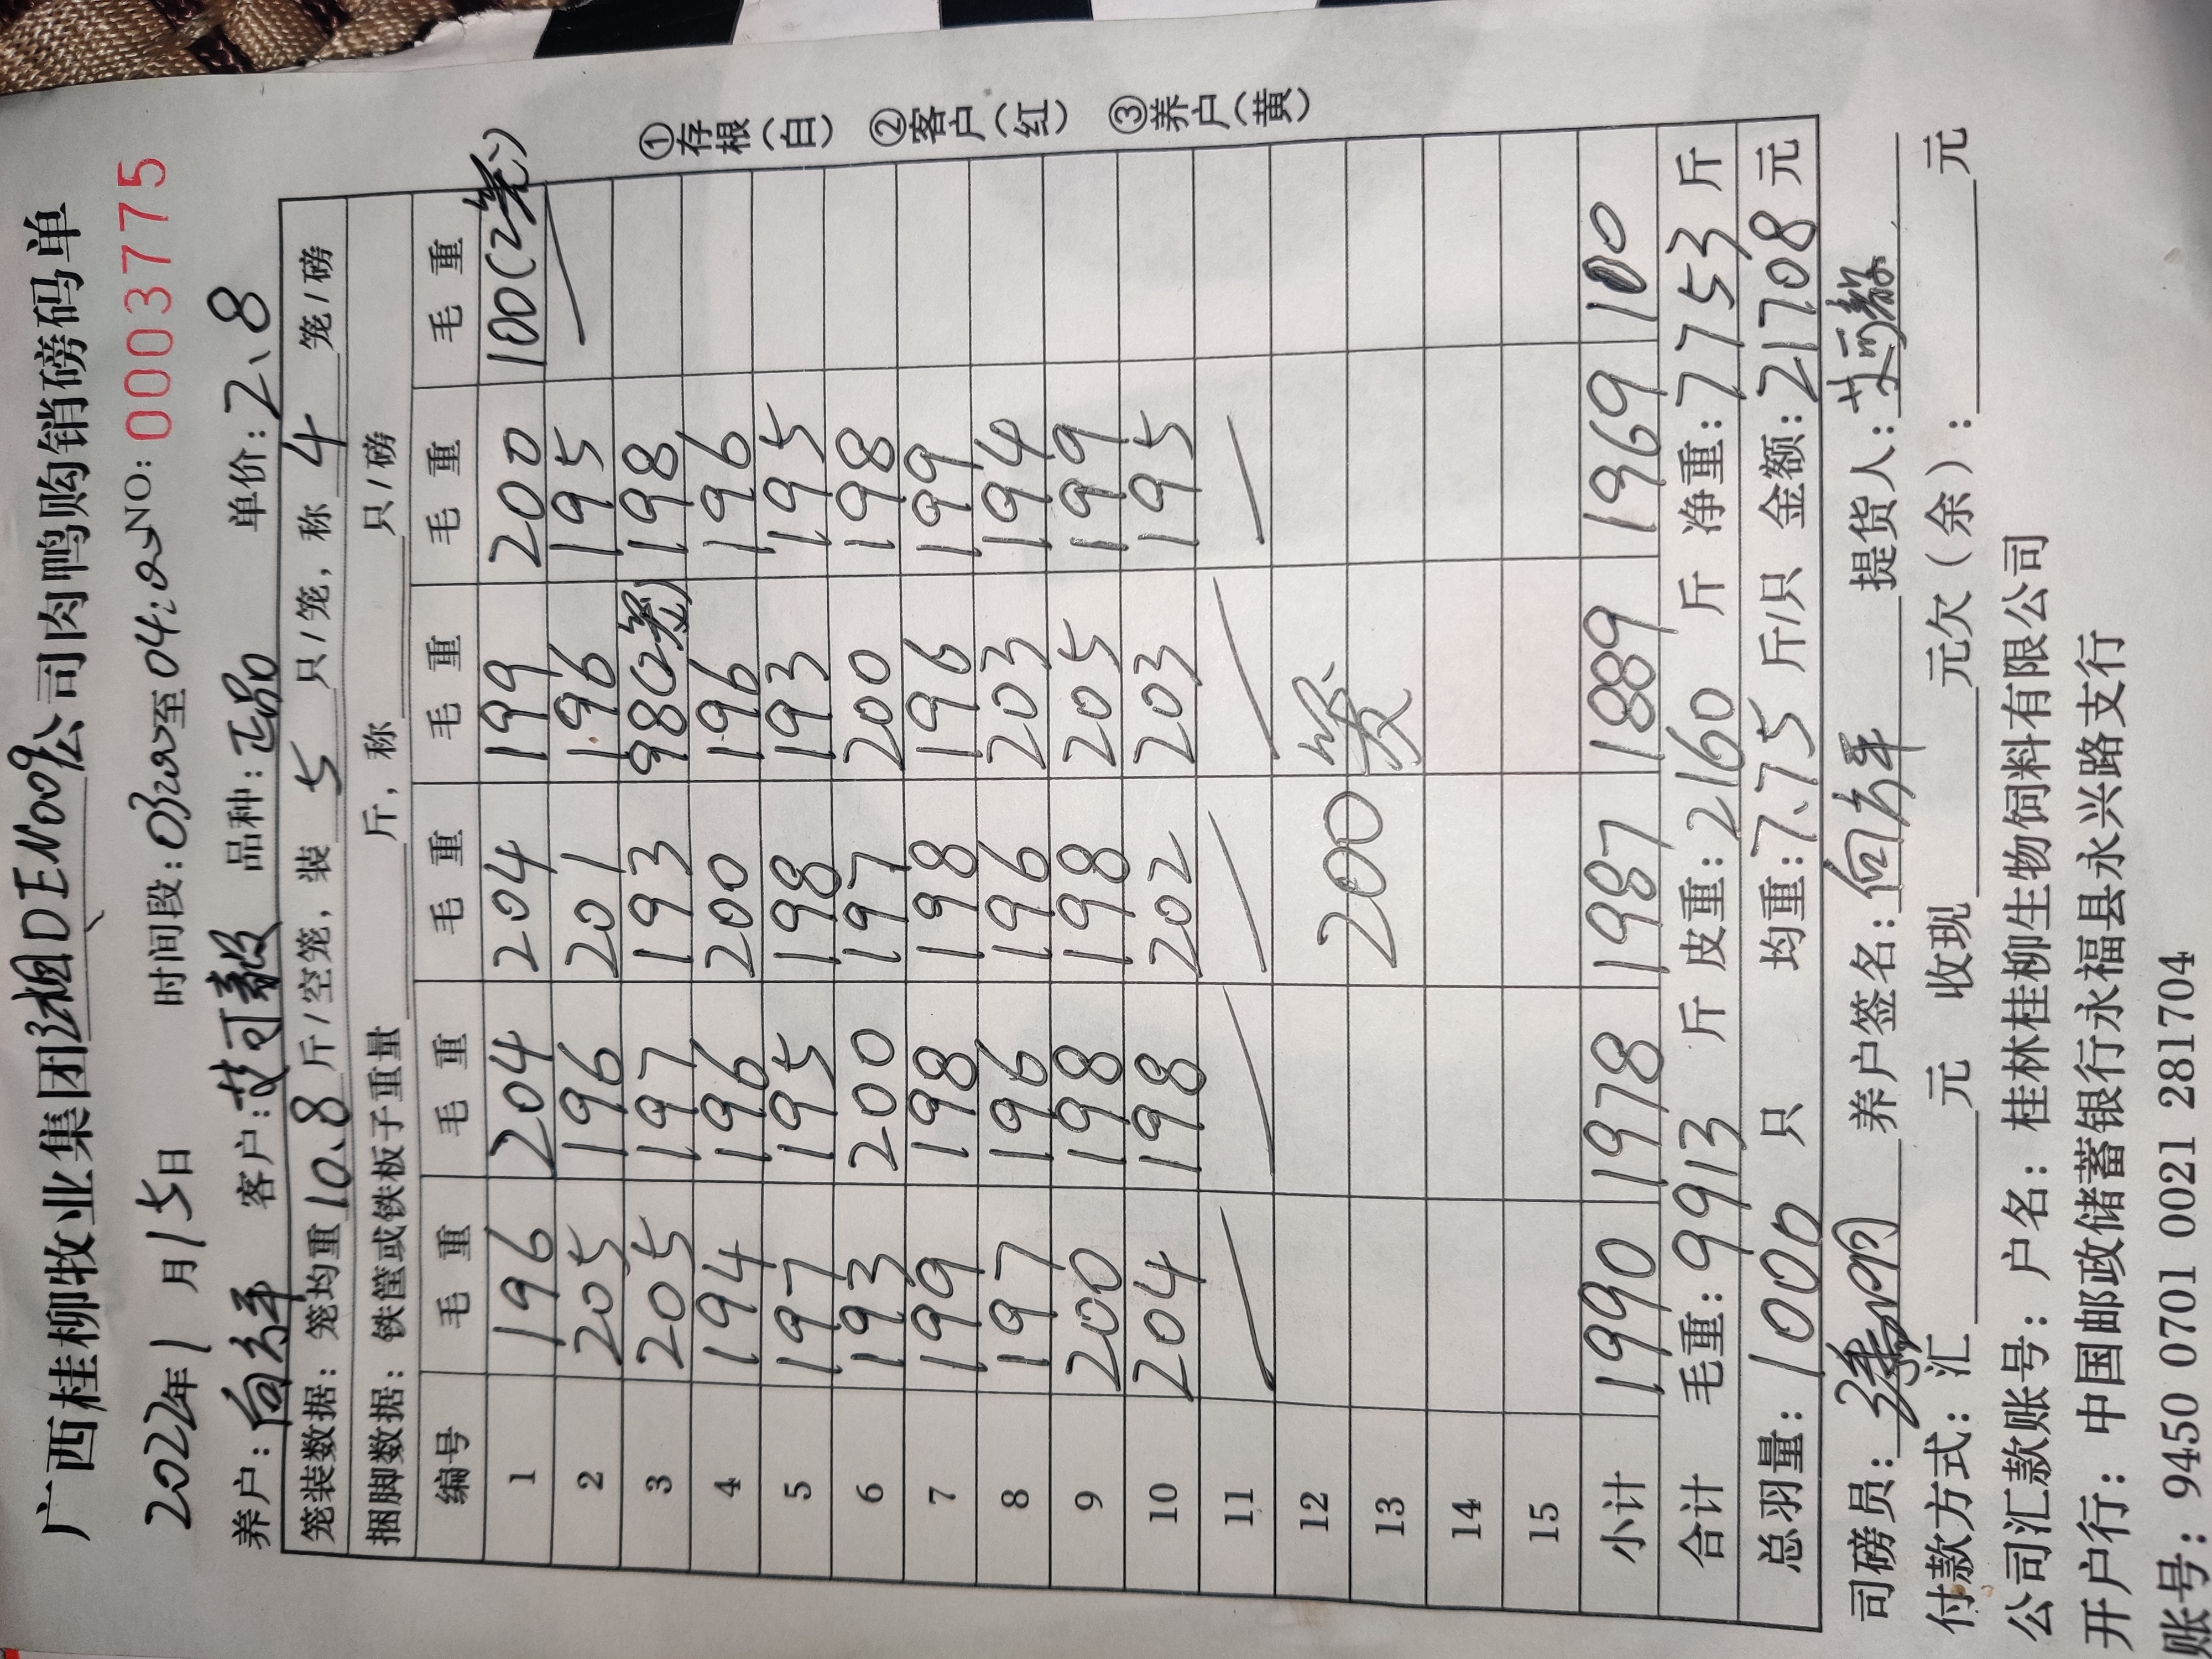 广西桂柳牧业集团湘DEN009公司肉鸭购销磅码单
2022年1月15日 时间段:03:20至04:20 NO: 0003775
养户:向祥 客户:范可毅 品种:正品 单价:2、8
笼装数据:笼均重10、8斤/空笼,装 5 只/笼,称 4 笼/磅
捆脚数据:铁筐或铁板子重量 斤,称 只/磅
编号 毛重 毛重 毛重 毛重 毛重 毛重
1 196 204 204 199 200 100(2笼)
2 205 196 201 196 195
3 205 197 193 98(2笼) 198
4 194 196 200 196 196
5 197 195 198 193 195
6 193 200 197 200 198
7 199 198 198 196 199
8 197 196 196 203 194
9 200 198 198 205 199
10 204 198 202 203 195
11
12
13 200笼
14
15
小计 1990 1978 1987 1889 1969 100
合计 毛重:9913 斤 皮重:2160 斤 净重:7753 斤
总羽量:1000 只 均重:7、75 斤/只 金额:21708 元
司磅员: 养户签名:向祥 提货人:
付款方式:汇 元 收现 元欠(余): 元
公司汇款账号:户名:桂林桂柳生物饲料有限公司
开户行:中国邮政储蓄银行永福县永兴路支行
账号:9450 0701 0021 281704
①存根(白) ②客户(红) ③养户(黄)